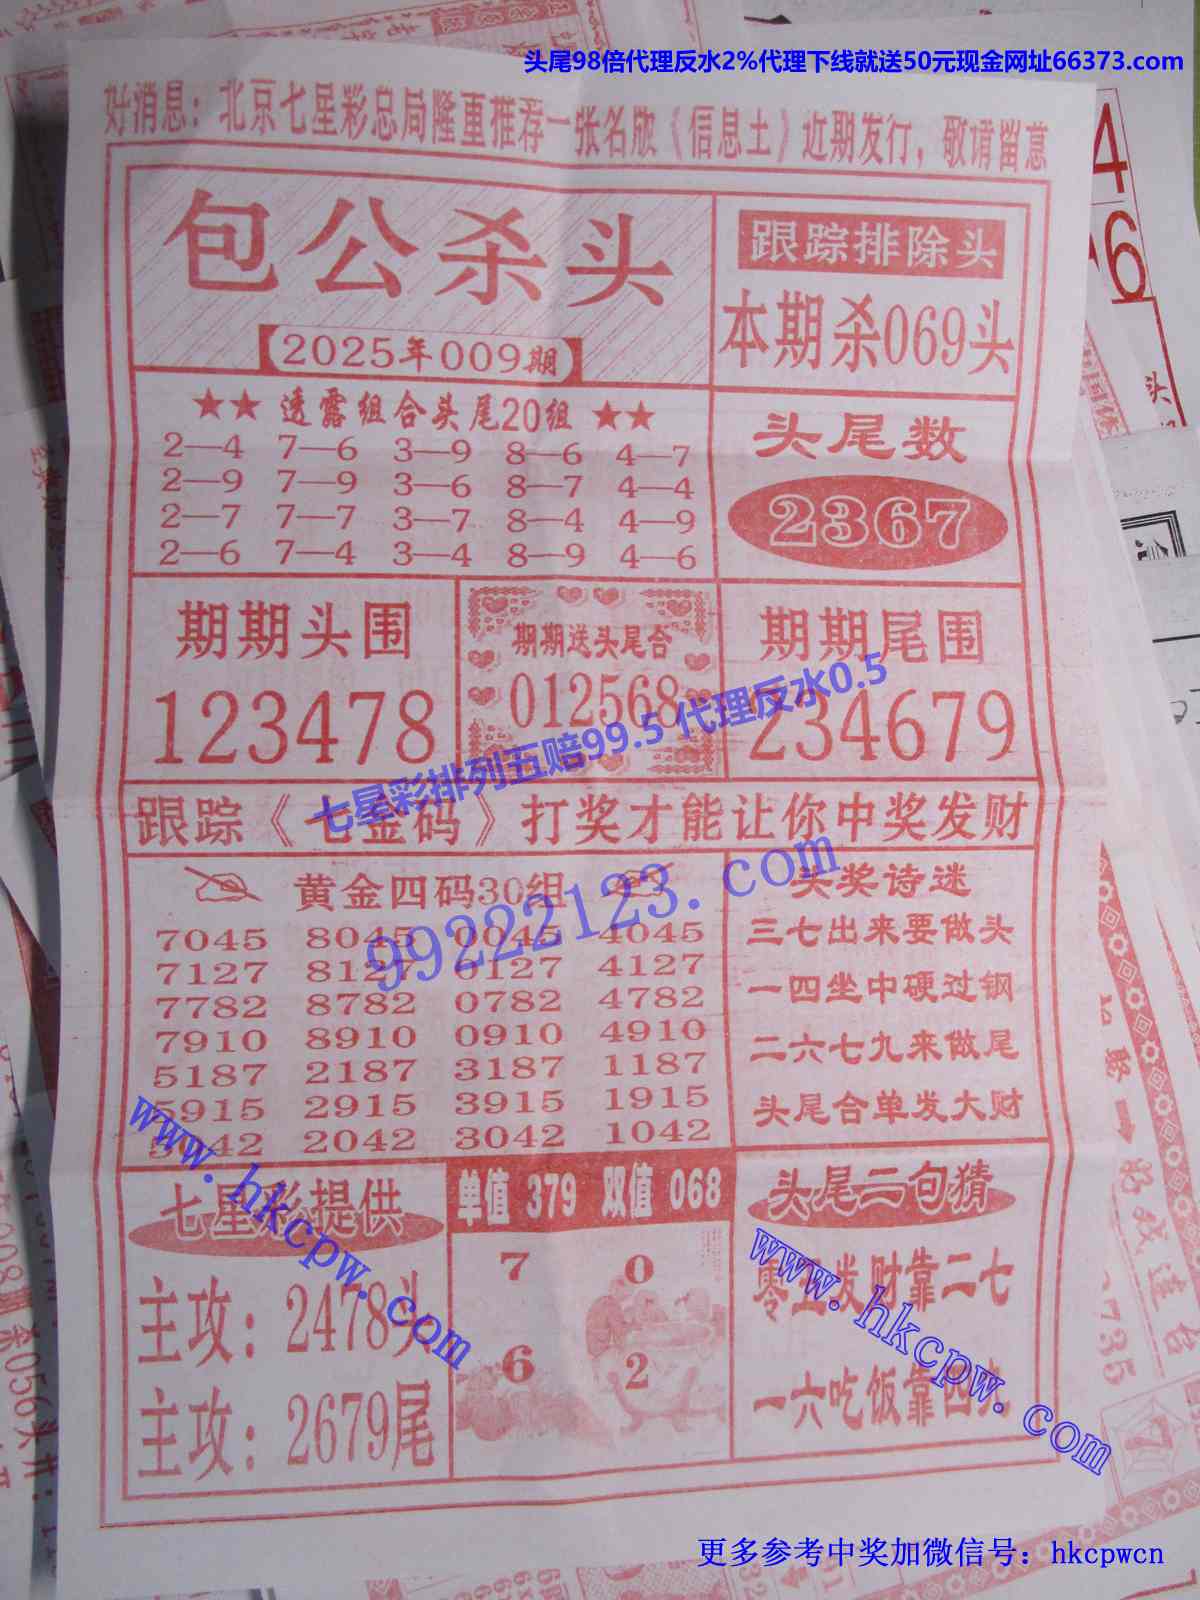 头尾98倍代理反水2%代理下线就送50元现金网址66373.com
好消息：北京七星彩总局隆重推荐一张名版《信息土》近期发行，敬请留意
包公杀头
【2025年009期】
跟踪排除头
本期杀069头
★★ 透露组合头尾20组 ★★
2—4 7—6 3—9 8—6 4—7
2—9 7—9 3—6 8—7 4—4
2—7 7—7 3—7 8—4 4—9
2—6 7—4 3—4 8—9 4—6
头尾数
2367
期期头围
123478
期期送头尾合
012568
期期尾围
234679
七星彩排列五赔99.5 代理反水0.5
跟踪《七金码》打奖才能让你中奖发财
99222123.com
黄金四码30组
7045 8045 0045 4045
7127 8127 0127 4127
7782 8782 0782 4782
7910 8910 0910 4910
5187 2187 3187 1187
5915 2915 3915 1915
5042 2042 3042 1042
头奖诗迷
三七出来要做头
一四坐中硬过钢
二六七九来做尾
头尾合单发大财
www.hkcpw.com
七星彩提供
主攻：2478头
主攻：2679尾
单值 379 双值 068
7 0
6 2
头尾二句猜
零五发财靠二七
一六吃饭靠四九
www.hkcpw.com
更多参考中奖加微信号：hkcpwcn